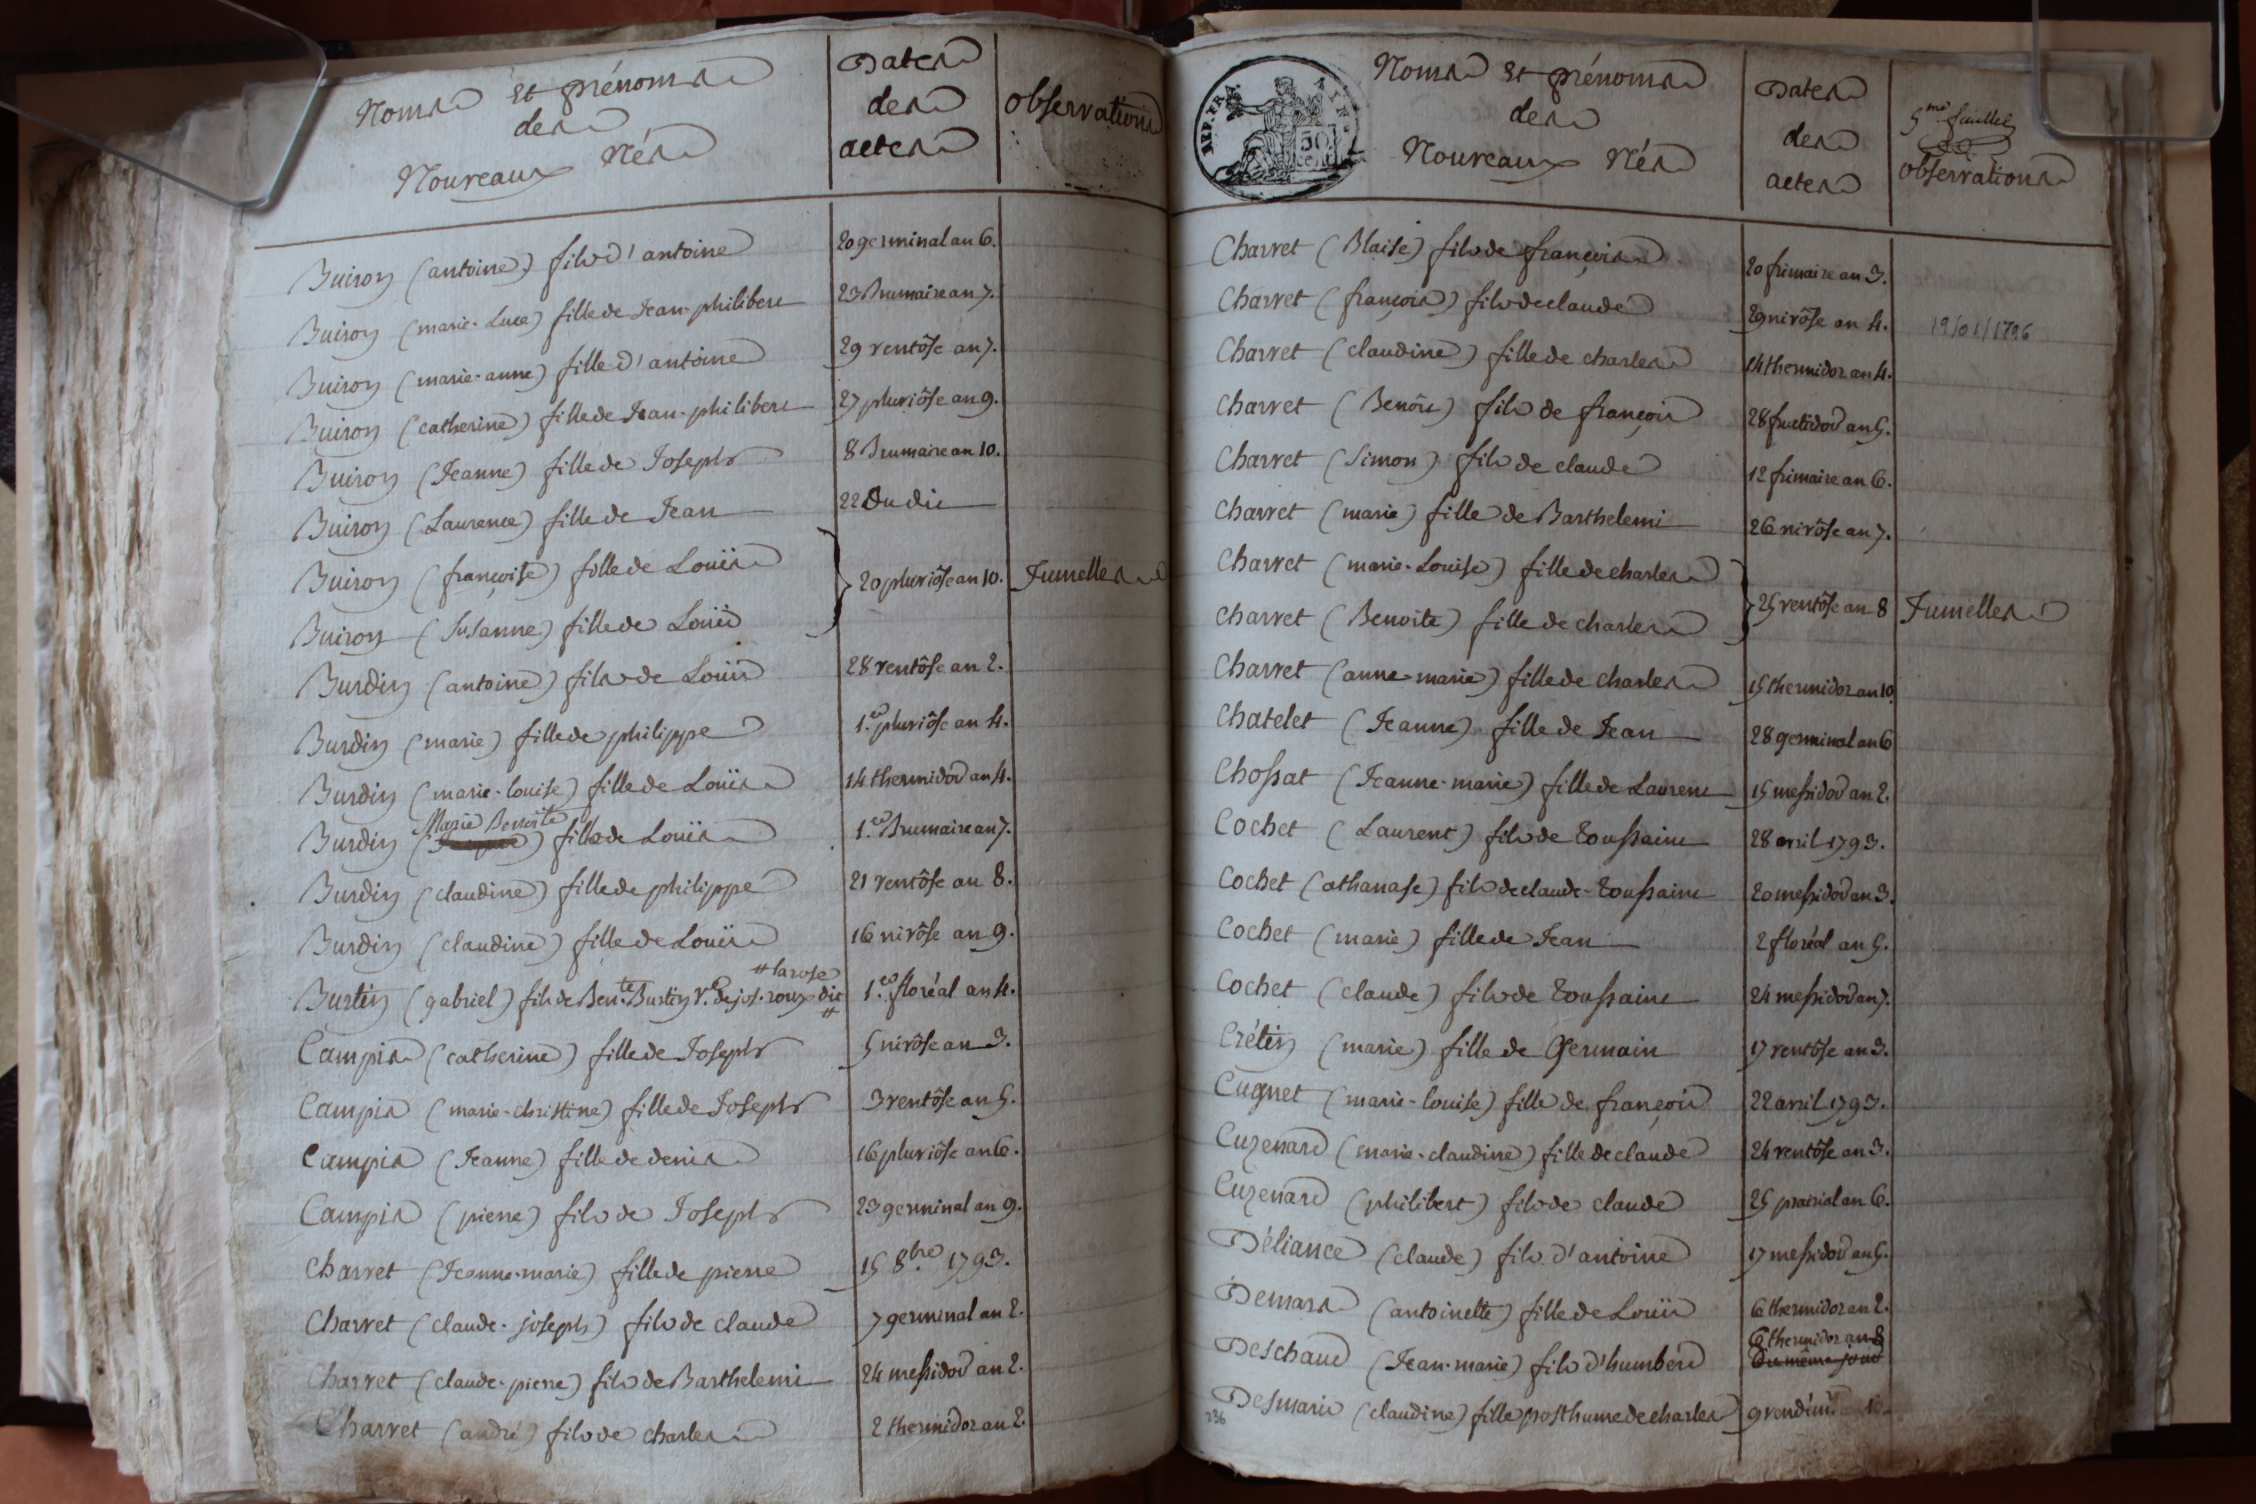 Noms et prénoms
des
Nouveaux Nés
Dates
des
actes
observations
Buiron (antoine) fils d'antoine 20 germinal an 6.
Buiron (marie-Luce) fille de Jean-philibert 23 Brumaire an 7.
Buiron (marie-anne) fille d'antoine 29 ventôse an 7.
Buiron (catherine) fille de Jean-philibert 27 pluviôse an 9.
Buiron (Jeanne) fille de Joseph 8 Brumaire an 10.
Buiron (Laurence) fille de Jean 22 Du dit
Buiron (françoise) fille de Louïs } 20 pluviôse an 10. Jumelles
Buiron (Susanne) fille de Louïs
Burdin (antoine) fils de Louïs 28 ventôse an 2.
Burdin (marie) fille de philippe 1.er pluviôse an 4.
Burdin (marie-louise) fille de Louïs 14 thermidor an 4.
Marie Benoite
Burdin () fille de Louïs 1.er Brumaire an 7.
Burdin (claudine) fille de philippe 21 ventôse an 8.
Burdin (claudine) fille de Louïs 16 nivôse an 9.
# larose
Burtin (gabriel) fils de Ben.te Burtin v.e de jos. roux dit # 1.er floréal an 4.
Campis (catherine) fille de Joseph 5 nivôse an 3.
Campis (marie-christine) fille de Joseph 3 ventôse an 5.
Campis (Jeanne) fille de denis 16 pluviôse an 6.
Campis (pierre) fils de Joseph 23 germinal an 9.
Charvet (Jeanne-marie) fille de pierre 15 8.bre 1793.
Charvet (claude-joseph) fils de claude 7 germinal an 2.
Charvet (claude-pierre) fils de Barthelemi 24 messidor an 2.
Charvet (andré) fils de charles 2 thermidor an 2.
REP. FRA.
50
Noms et prénoms
des
Nouveaux Nés
Dates
des
actes
5.me feuillet
observations
Charvet (Blaise) fils de françois 20 frimaire an 3.
Charvet (françois) fils de claude 29 nivôse an 4. 19/01/1796
Charvet (claudine) fille de charles 14 thermidor an 4.
Charvet (Benôit) fils de françois 28 fructidor an 5.
Charvet (Simon) fils de claude 12 frimaire an 6.
Charvet (marie) fille de Barthelemi 26 nivôse an 7.
Charvet (marie-Louise) fille de charles } 25 ventôse an 8 Jumelles
Charvet (Benoite) fille de charles
Charvet (anne-marie) fille de charles 15 thermidor an 10
Chatelet (Jeanne) fille de Jean 28 germinal an 6
Chossat (Jeanne-marie) fille de Laurent 15 messidor an 2.
Cochet (Laurent) fils de Toussaint 28 avril 1793.
Cochet (athanase) fils de claude-Toussaint 20 messidor an 3.
Cochet (marie) fille de Jean 2 floréal an 5.
Cochet (claude) fils de Toussaint 24 messidor an 7.
Crétin (marie) fille de Germain 17 ventôse an 3.
Cugnet (marie-louise) fille de françois 22 avril 1793.
Cuzenard (marie-claudine) fille de claude 24 ventôse an 3.
Cuzenard (philibert) fils de claude 25 prairial an 6.
Déliance (claude) fils d'antoine 17 messidor an 5.
Demars (antoinette) fille de Louïs 6 thermidor an 2.
6 thermidor an 8
Deschaud (Jean-marie) fils d'humberd Du même jour
Desmaris (claudine) fille posthume de charles 9 vendém.re an 10.
236